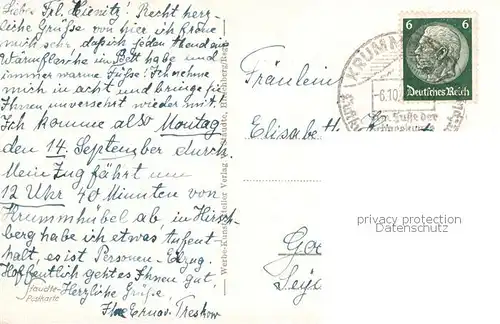 Liebe Frl. Mienitz! Recht herz-
liche Grüße von hier ich freue
mich sehr, daß ich jeden Abend eine
Wärmflasche im Bett habe und
immer warme Füße! Ich nehme
mich in acht und bringe sie
Ihnen unversehrt wieder mit.
Ich komme also Montag
den 14. September durch.
Mein Zug fährt um
12 Uhr 40 Minuten von
Krummhübel ab, in Hirsch-
berg habe ich etwas Aufent
halt, es ist Personen-Eilzug.
Hoffentlich geht es Ihnen gut.
Herzliche Grüße
Ihre Treskow
Staudte-
Postkarte
Werbe-Kunst-Atelier Verlag Staudte, Hirschberg/Rsgb.
6 6
Deutsches Reich
KRUMM
-6.10.
Am Fuße der
Fräulein
Elisabeth
privacy protection
Datenschutz